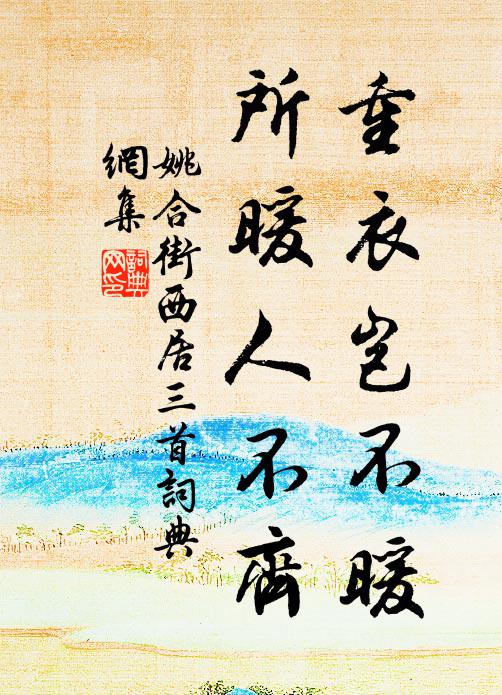 重衣岂不暖
所暖人不齊
姚合街西居三首詞典
網集
詞典
网印